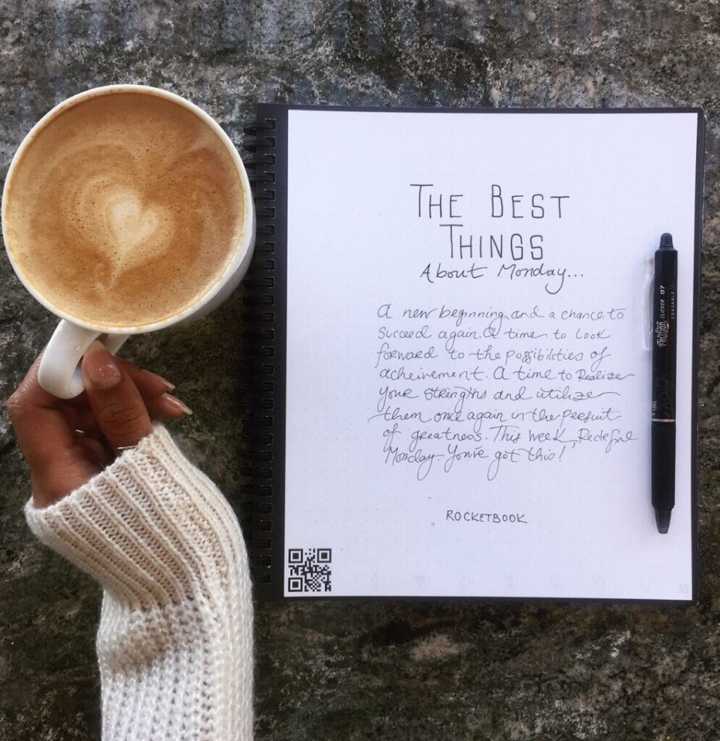 THE BEST
THINGS
About Monday...
A new beginning and a chance to
succeed again. A time to look
forward to the possibilities of
acheivement. A time to Realize
your strengths and utilize
them once again in the persuit
of greatness. This week, Redefine
Monday - You've got this!
ROCKETBOOK